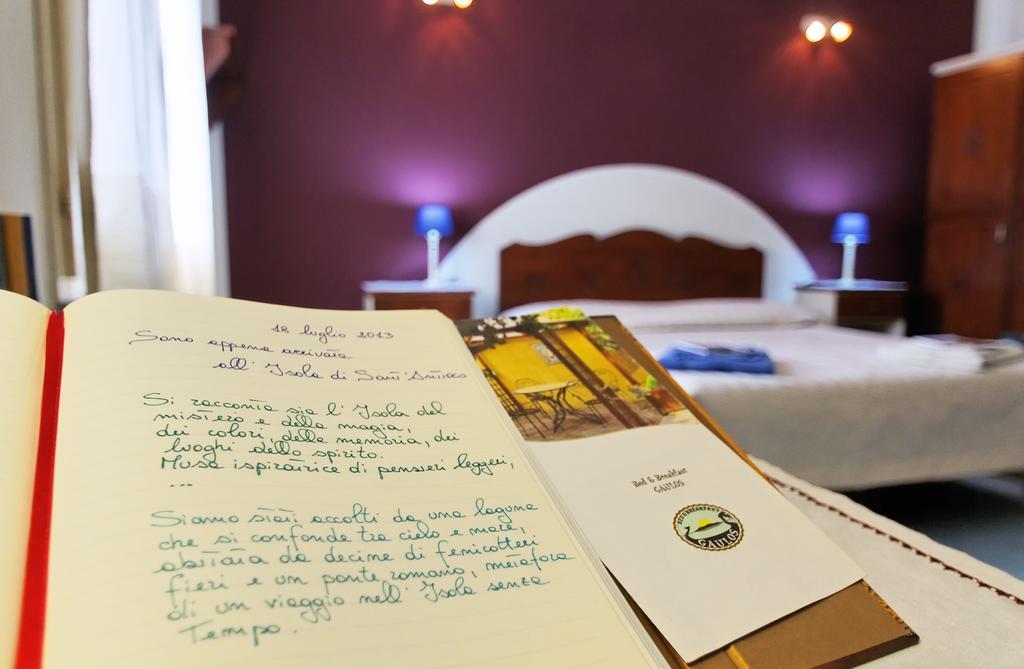 12 luglio 2013
Sono appena arrivata
all'Isola di Sant'Antioco
Si racconta sia l'Isola del
mistero e della magia,
dei colori, della memoria, dei
luoghi dello spirito.
Musa ispiratrice di pensieri leggeri,
...
Siamo stati accolti da una laguna
che si confonde tra cielo e mare,
abitata da decine di fenicotteri
fieri e un ponte romano, metafora
di un viaggio nell'Isola senza
Tempo.
Bed & Breakfast
GAULOS
BED & BREAKFAST
GAULOS